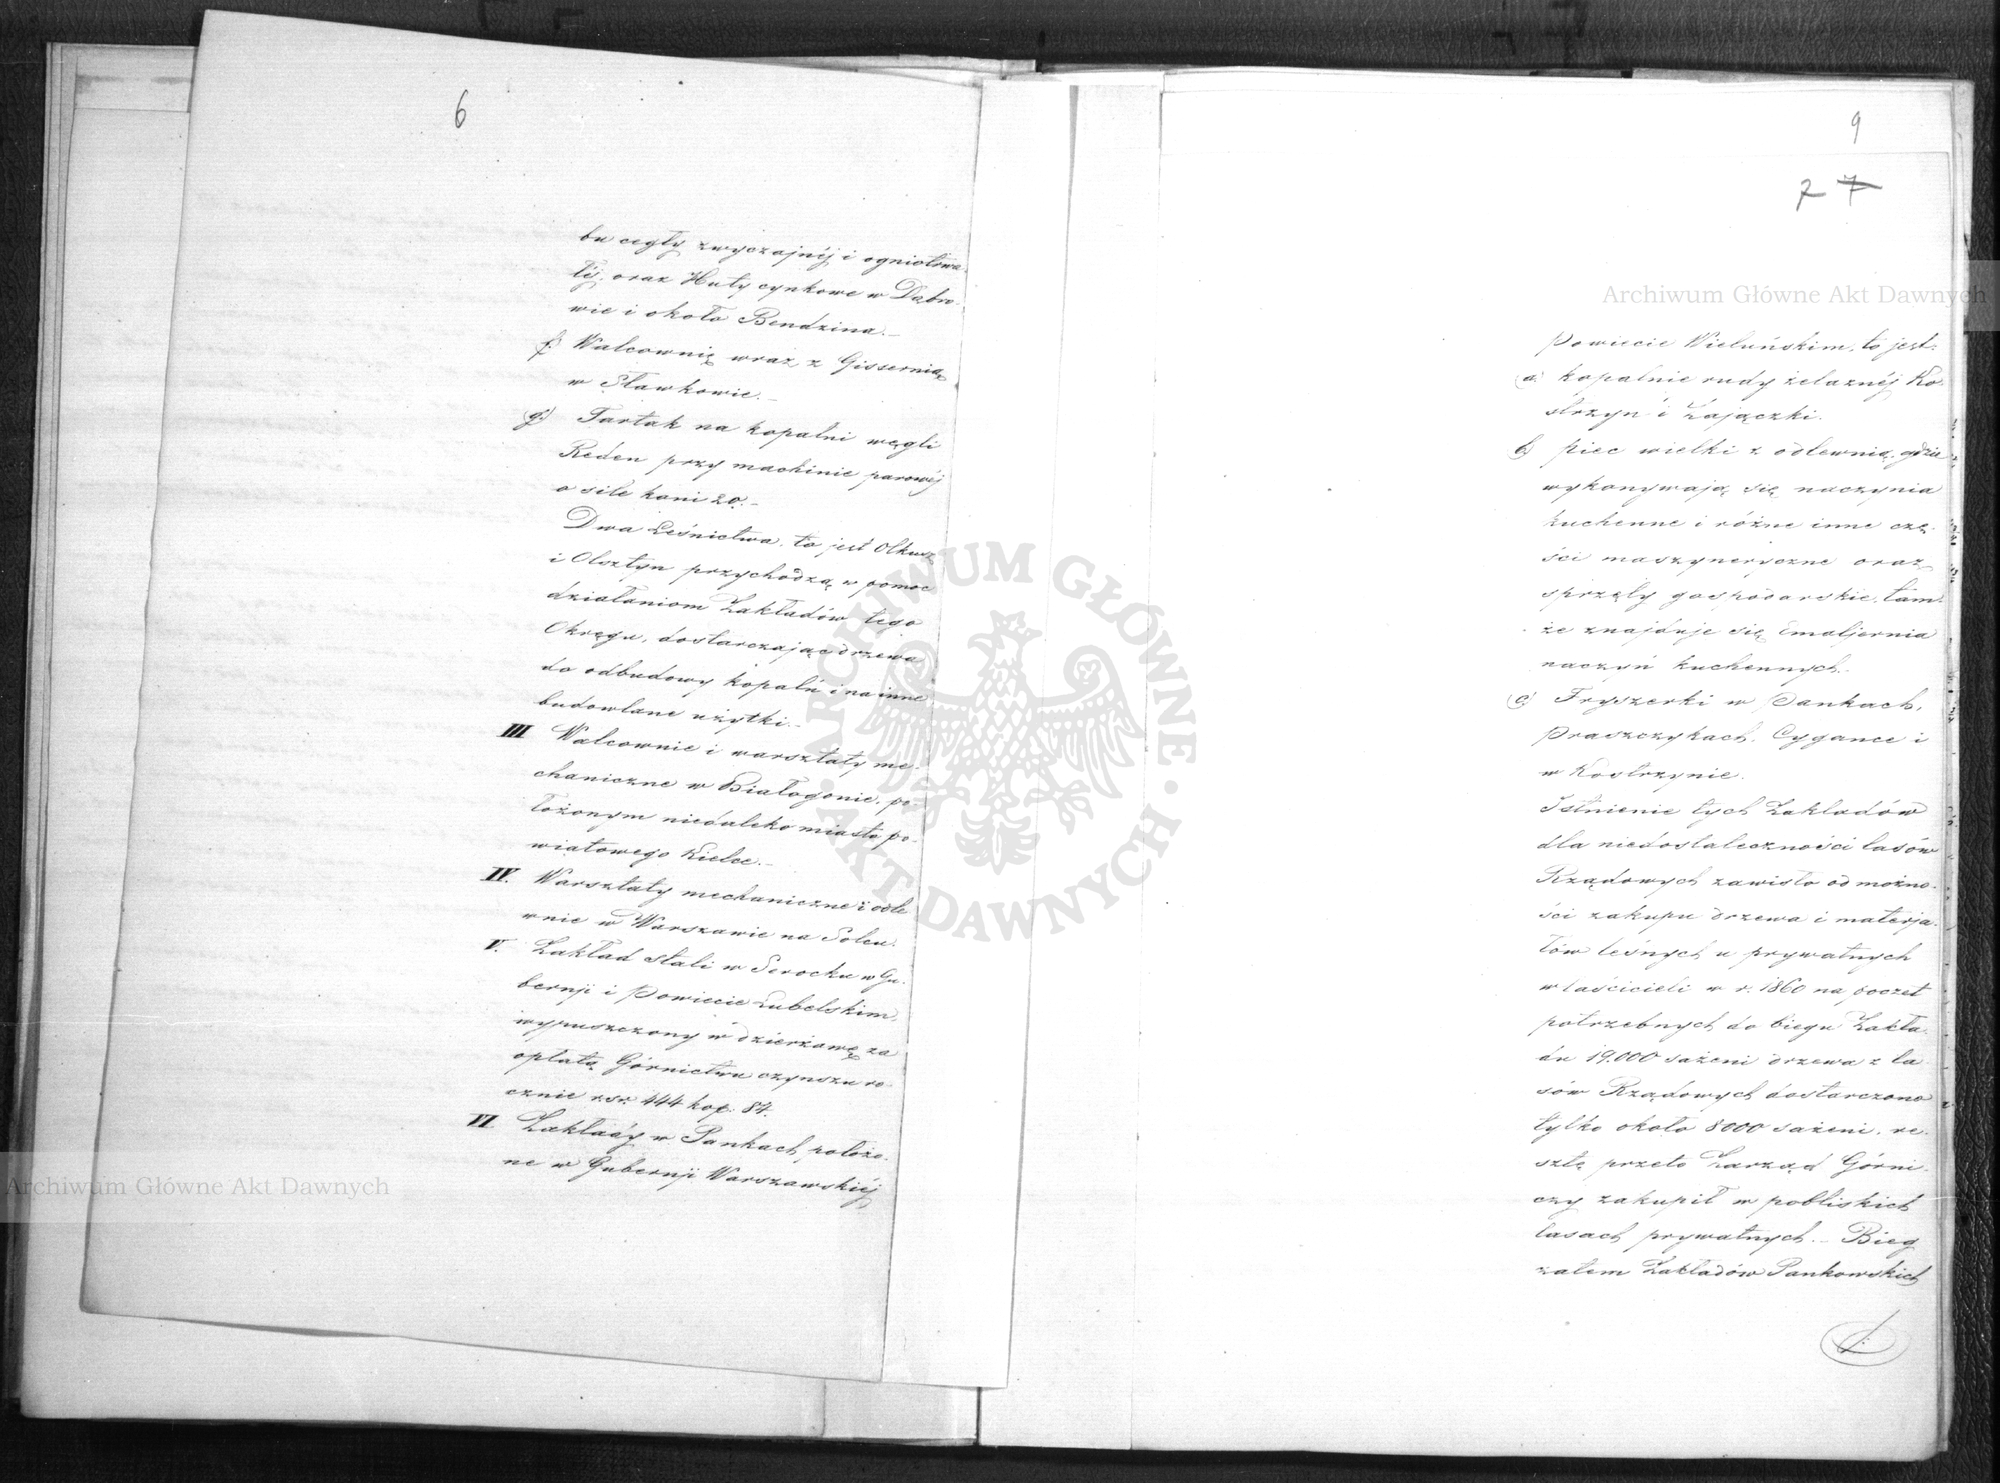 6
bu cegły zwyczajnéj i ogniotrwa-
łéj, oraz Huty cynkowe w Dąbro-
wie i około Bendzina.-
f.) Walcownię wraz z Gissernią
w Sławkowie.-
g.) Tartak na kopalni węgli
Reden przy machinie parowéj
o sile koni 20.-
Dwa Leśnictwa, to jest Olkusz
i Olsztyn przychodzą w pomoc
działaniom Zakładów tego
Okręgu, dostarczając drzewa
do odbudowy kopalń i na inne
budowlane użytki.-
III Walcownie i warsztaty me-
chaniczne w Białogonie, po-
łożonym niedaleko miasta po-
wiatowego Kielce.-
IV. Warsztaty mechaniczne i odle
wnie w Warszawie na Solcu.
V. Zakład stali w Serocku w Gu-
bernji i Powiecie Lubelskim,
wypuszczony w dzierżawę za
opłatą Górnictwu czynszu ro-
cznie rsr. 444 kop: 87.
VI Zakłady w Pankach, położo-
ne w Gubernji Warszawskiéj
9
7 7
Powiecie Wieluńskim, to jest:
a.) kopalnie rudy żelaznéj Ko-
strzyń i Zajączki.
b.) piec wielki z odlewnią, gdzie
wykonywają się naczynia
kuchenne i różne inne czę-
ści maszyneryczne oraz
sprzęty gospodarskie, tam-
że znajduje się Emaljernia
naczyń kuchennych.-
c.) Fryszerki w Pankach,
Praszczykach, Cygance i
w Kostrzynie.
Istnienie tych Zakładów
dla niedostateczności lasów
Rządowych zawisło od możno-
ści zakupu drzewa i materja-
łów leśnych u prywatnych
właścicieli w r. 1860 na poczet
potrzebnych do biegu Zakła-
du 19.000 sażeni drzewa z la
sów Rządowych dostarczono
tylko około 8000 sażeni, re-
sztę przeto Zarząd Górni-
czy zakupił w pobliskich
lasach prywatnych.- Bieg
zatem Zakładów Pankowskich
Archiwum Główne Akt Dawnych
Archiwum Główne Akt Dawnych
ARCHIWUM GŁÓWNE · AKT DAWNYCH ·